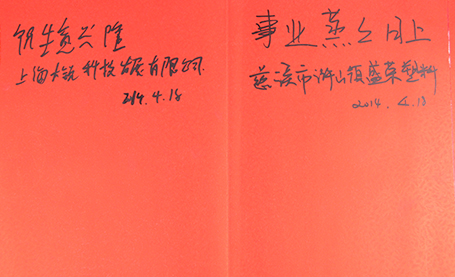 祝生意兴隆
上海大筑科技发展有限公司
2014.4.18
事业蒸蒸日上
慈溪市浒山领盛荣塑料
2014.4.18